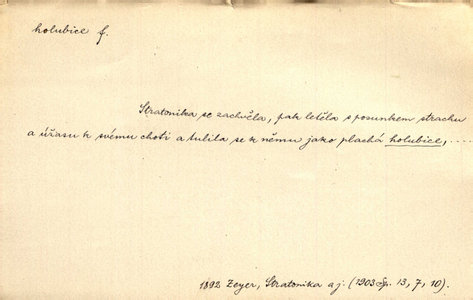 holubice f.
Stratonika se zachvěla, pak letěla s posunkem strachu
a úžasu k svému choti a tulila se k němu jako plachá holubice, ....
1892 Zeyer, Stratonika a j. (1903 Sp. 13, 7, 10).